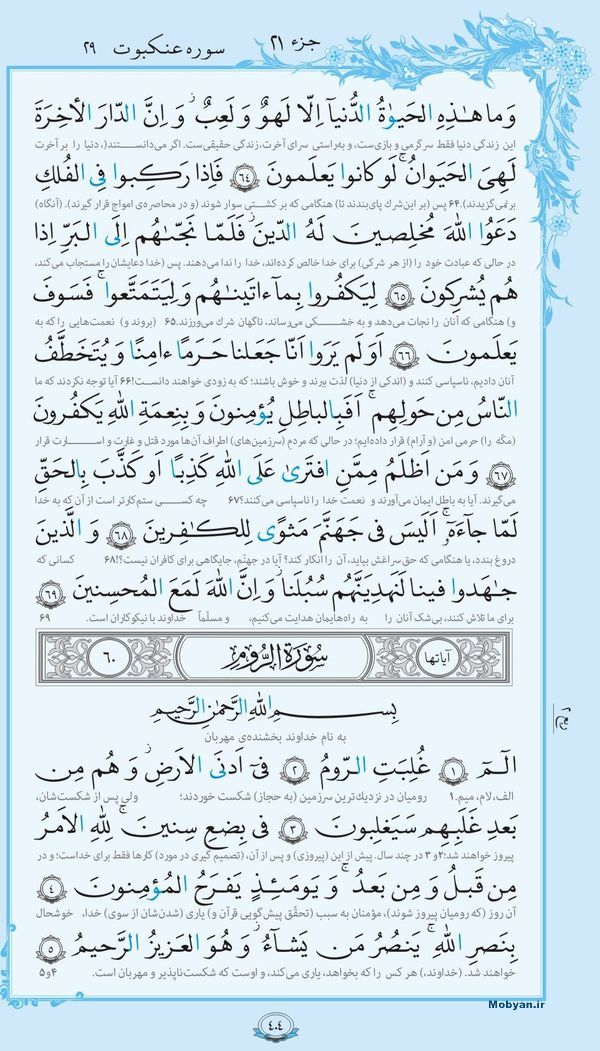 جزء ۲۱ سوره عنکبوت ۲۹
وَ ما هٰذِهِ الحَیوٰةُ الدُّنیآ اِلّا لَهوٌ وَ لَعِبٌ ۚ وَ اِنَّ الدّارَ الأخِرَةَ
این زندگی دنیا فقط سرگرمی و بازی‌ست، و به‌راستی سرای آخرت، زندگی حقیقی‌ست. اگر می‌دانستند(، دنیا را بر آخرت
لَهِیَ الحَیَوانُ ۚ لَو کانوا یَعلَمونَ ﴿۶۴﴾ فَاِذا رَکِبوا فِی الفُلکِ
برنمی‌گزیدند). ۶۴ پس (بر این‌شرك پای‌بندند تا) هنگامی که بر کشتی سوار شوند (و در محاصره‌ی امواج قرار گیرند). (آنگاه)
دَعَوُا اللهَ مُخلِصینَ لَهُ الدّینَ ۚ فَلَمّا نَجّىٰهُم اِلَی البَرِّ اِذا
در حالی که عبادت خود را (از هر شرکی) برای خدا خالص کرده‌اند، خدا را ندا می‌دهند. پس (خدا دعایشان را مستجاب می‌کند،
هُم یُشرِکونَ ﴿۶۵﴾ لِیَکفُروا بِمآ ءاتَینٰهُم وَ لِیَتَمَتَّعوا ۚ فَسَوفَ
و) هنگامی که آنان را نجات می‌دهد و به خشکی می‌رساند، ناگهان شرك می‌ورزند. ۶۵ (بروند و) نعمت‌هایی را که به
یَعلَمونَ ﴿۶۶﴾ اَوَ لَم یَرَوا اَنّا جَعَلنا حَرَمًا ءامِنًا وَ یُتَخَطَّفُ
آنان دادیم، ناسپاسی کنند و (اندکی از دنیا) لذت ببرند و خوش باشند؛ که به زودی خواهند دانست! ۶۶ آیا توجه نکردند که ما
النّاسُ مِن حَولِهِم ۚ اَفَبِالباطِلِ یُؤمِنونَ وَ بِنِعمَةِ اللهِ یَکفُرونَ
(مکّه را) حرمی امن (و آرام) قرار داده‌ایم؛ در حالی که مردم (سرزمین‌های) اطراف آن‌ها مورد قتل و غارت و اسارت قرار
﴿۶۷﴾ وَ مَن اَظلَمُ مِمَّنِ افتَرىٰ عَلَی اللهِ کَذِبًا اَو کَذَّبَ بِالحَقِّ
می‌گیرند. آیا به باطل ایمان می‌آورند و نعمت خدا را ناسپاسی می‌کنند؟ ۶۷ چه کسی ستم‌کارتر است از آن که به خدا
لَمّا جآءَهُ ۚ اَلَیسَ فی جَهَنَّمَ مَثوًی لِلکٰفِرینَ ﴿۶۸﴾ وَ الَّذینَ
دروغ بندد، یا هنگامی که حق سراغش بیاید، آن را انکار کند؟ آیا در جهنّم، جایگاهی برای کافران نیست؟! ۶۸ کسانی که
جٰهَدوا فینا لَنَهدِیَنَّهُم سُبُلَنا ۚ وَ اِنَّ اللهَ لَمَعَ المُحسِنینَ ﴿۶۹﴾
برای ما تلاش کنند، بی‌شک آنان را به راه‌هایمان هدایت می‌کنیم، و مسلّماً خداوند با نیکوکاران است. ۶۹
آیاتها سورة الرّوم ۶۰
بِسمِ اللهِ الرَّحمٰنِ الرَّحیمِ
به نام خداوند بخشنده‌ی مهربان
الٓمٓ ﴿۱﴾ غُلِبَتِ الرّومُ ﴿۲﴾ فیٓ اَدنَی الاَرضِ وَ هُم مِن
الف، لام، میم. ۱ رومیان در نزدیك‌ترین سرزمین (به حجاز) شکست خوردند؛ ولی پس از شکست‌شان،
بَعدِ غَلَبِهِم سَیَغلِبونَ ﴿۳﴾ فی بِضعِ سِنینَ ۗ لِلّٰهِ الاَمرُ
پیروز خواهند شد؛ ۲و ۳ در چند سال. پیش از این (پیروزی) و پس از آن، (تصمیم گیری در مورد) کارها فقط برای خداست؛ و در
مِن قَبلُ وَ مِن بَعدُ ۚ وَ یَومَئِذٍ یَفرَحُ المُؤمِنونَ ﴿۴﴾
آن روز (که رومیان پیروز شوند)، مؤمنان به سبب (تحقّق پیش‌گویی قرآن و) یاری (شدن‌شان از سوی) خدا، خوشحال
بِنَصرِ اللهِ ۚ یَنصُرُ مَن یَشآءُ ۖ وَ هُوَ العَزیزُ الرَّحیمُ ﴿۵﴾
خواهند شد. (خداوند،) هر کس را که بخواهد، یاری می‌کند، و اوست که شکست‌ناپذیر و مهربان است. ۴و۵
Mobyan.ir
۴۰۴